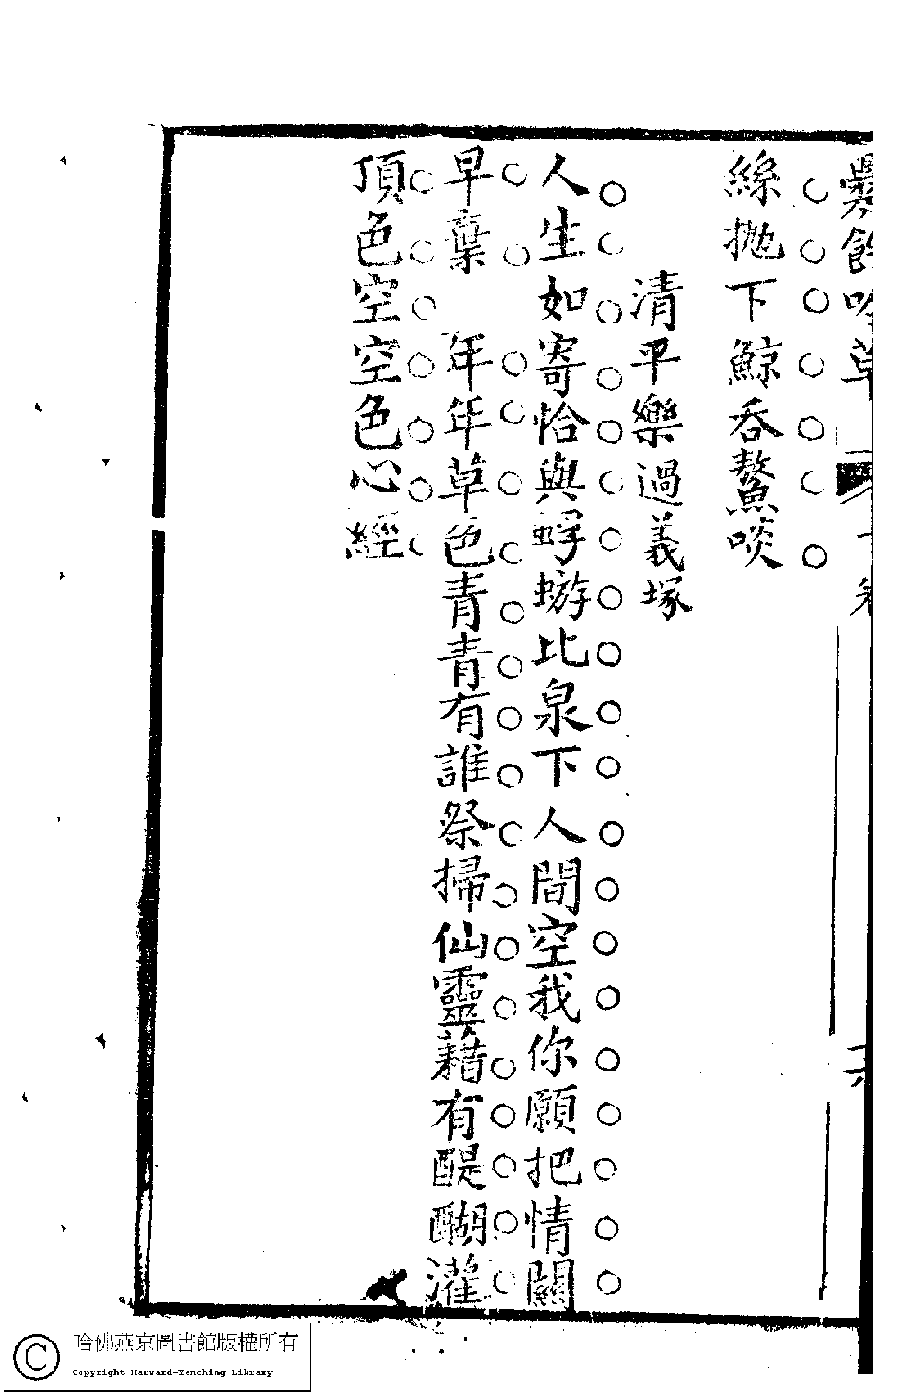 絲拋下鯨吞鰲啖
清平樂過義塚
人生如寄恰與蜉蝣比泉下人間空我你願把情關
早棄　年年草色青青有誰祭掃仙靈藉有醍醐灌
頂色空空色心經
哈佛燕京圖書館版權所有
Copyright Harvard-Yenching Library